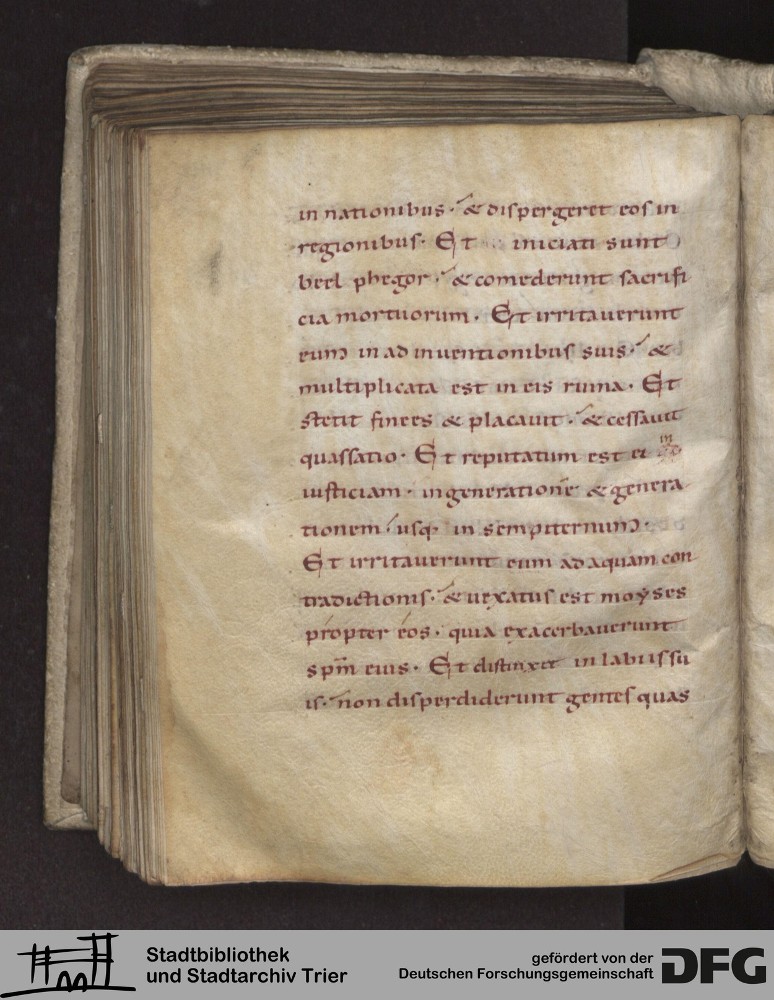 in nationibus· & dispergeret eos in
regionibus· Et iniciati sunt
beel phegor· & comederunt sacrifi
cia mortuorum· Et irritauerunt
eum in adinuentionibus suis· &
multiplicata est in eis ruina· Et
stetit finees & placauit· & cessauit
quassatio· Et reputatum est ei in
iusticiam· in generatione & genera
tionem usq· in sempiternum·
Et irritauerunt eum ad aquam con
tradictionis· & uexatus est moẏses
propter eos· quia exacerbauerunt
sp̄m eius· Et distinxit in labiis su
is· non disperdiderunt gentes quas
Stadtbibliothek
und Stadtarchiv Trier
gefördert von der
Deutschen Forschungsgemeinschaft
DFG